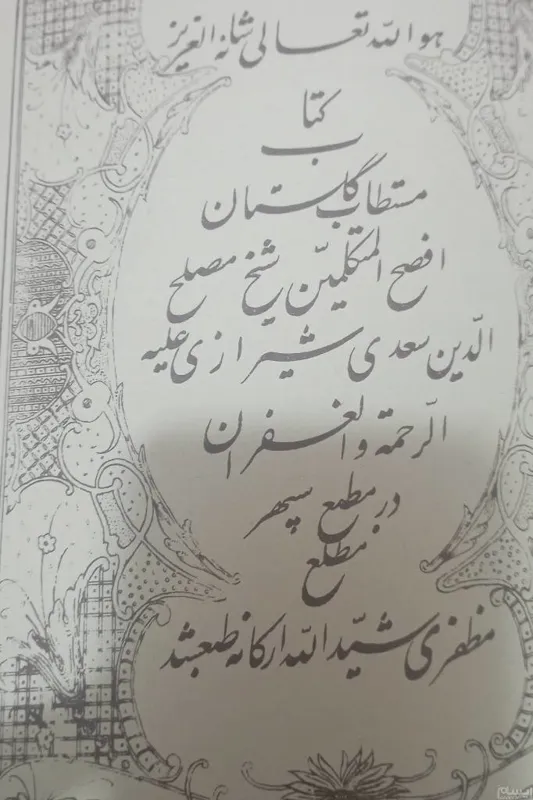 هو الله تعالی شانه العزیز
کتا
ب
مستطاب گلستان
افصح المتکلمین شیخ مصلح
الدین سعدی شیرازی علیه
الرحمة و الغفران
در مطبع سپهر
مطلع
مظفری شیّد الله ارکانه طبع شد